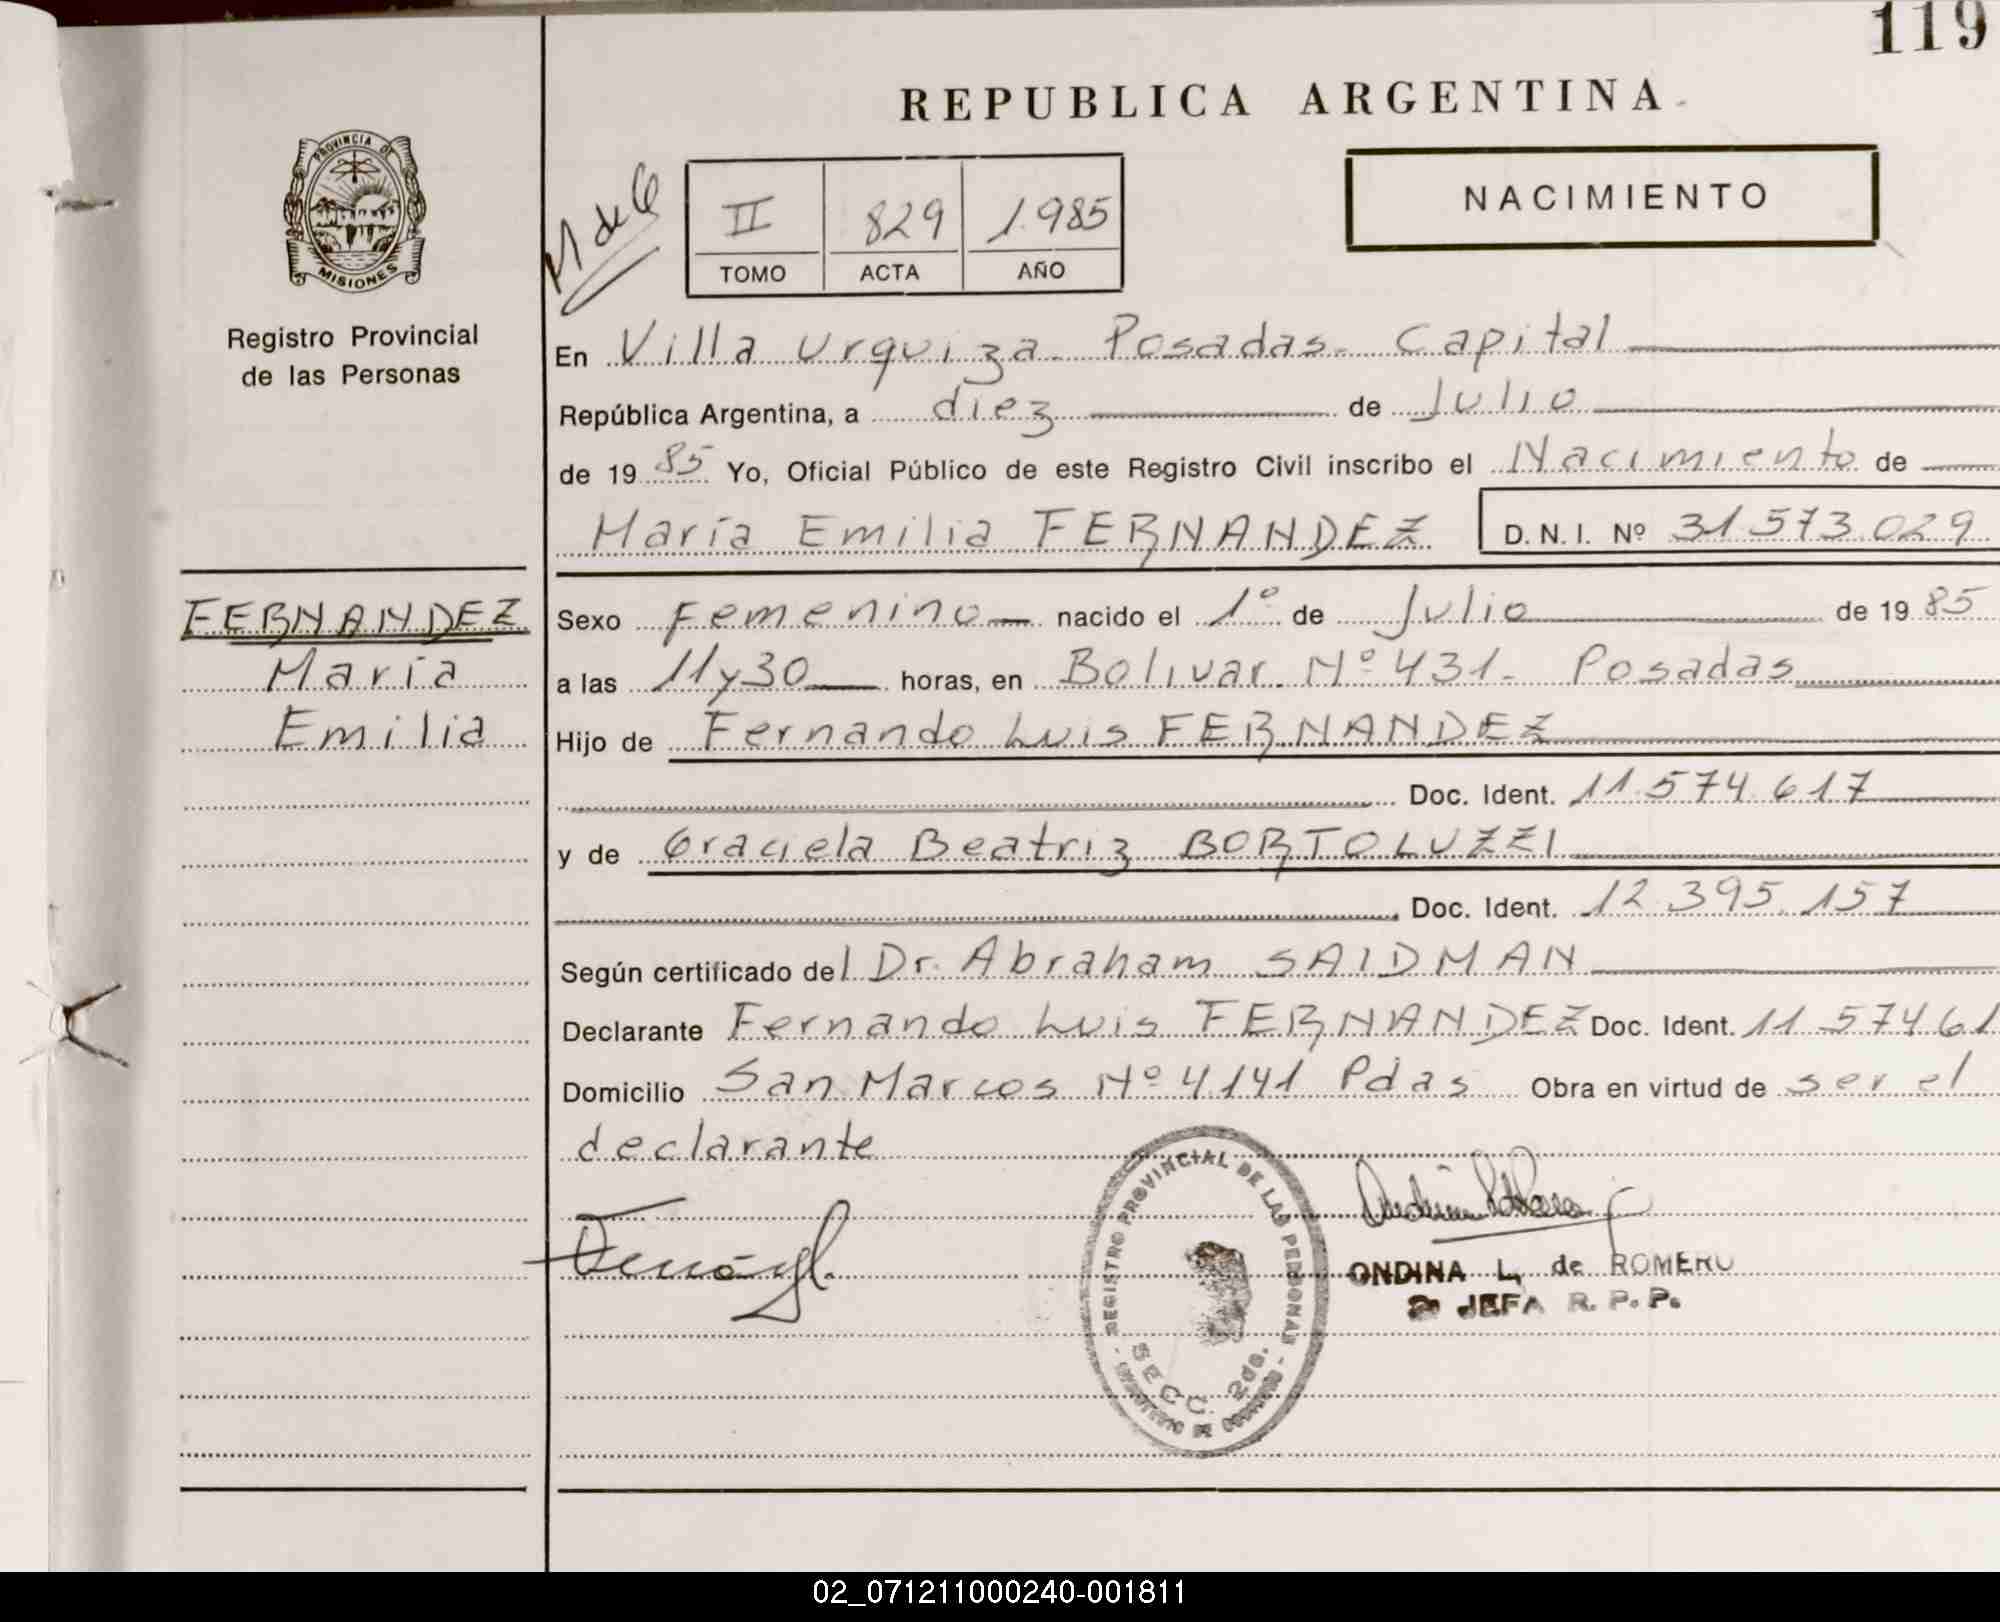 119
REPUBLICA ARGENTINA
PROVINCIA DE
MISIONES
Registro Provincial
de las Personas
M de G
II 829 1.985
TOMO ACTA AÑO
NACIMIENTO
En Villa Urquiza Posadas Capital
República Argentina, a diez de Julio
de 19 85 Yo, Oficial Público de este Registro Civil inscribo el Nacimiento de
María Emilia FERNANDEZ D. N. I. Nº 31.573.029
FERNANDEZ
María
Emilia
Sexo Femenino nacido el 1º de Julio de 19 85
a las 11 y 30 horas, en Bolivar Nº 431 - Posadas
Hijo de Fernando Luis FERNANDEZ
Doc. Ident. 11.574.617
y de Graciela Beatriz BORTOLUZZI
Doc. Ident. 12.395.157
Según certificado del Dr. Abraham SAIDMAN
Declarante Fernando Luis FERNANDEZ Doc. Ident. 11.57461
Domicilio San Marcos Nº 4141 Pdas Obra en virtud de ser el
declarante
REGISTRO PROVINCIAL DE LAS PERSONAS
SECC. 2da.
MINISTERIO DE GOBIERNO
ONDINA L. de ROMERO
2ª JEFA R. P. P.
02_071211000240-001811